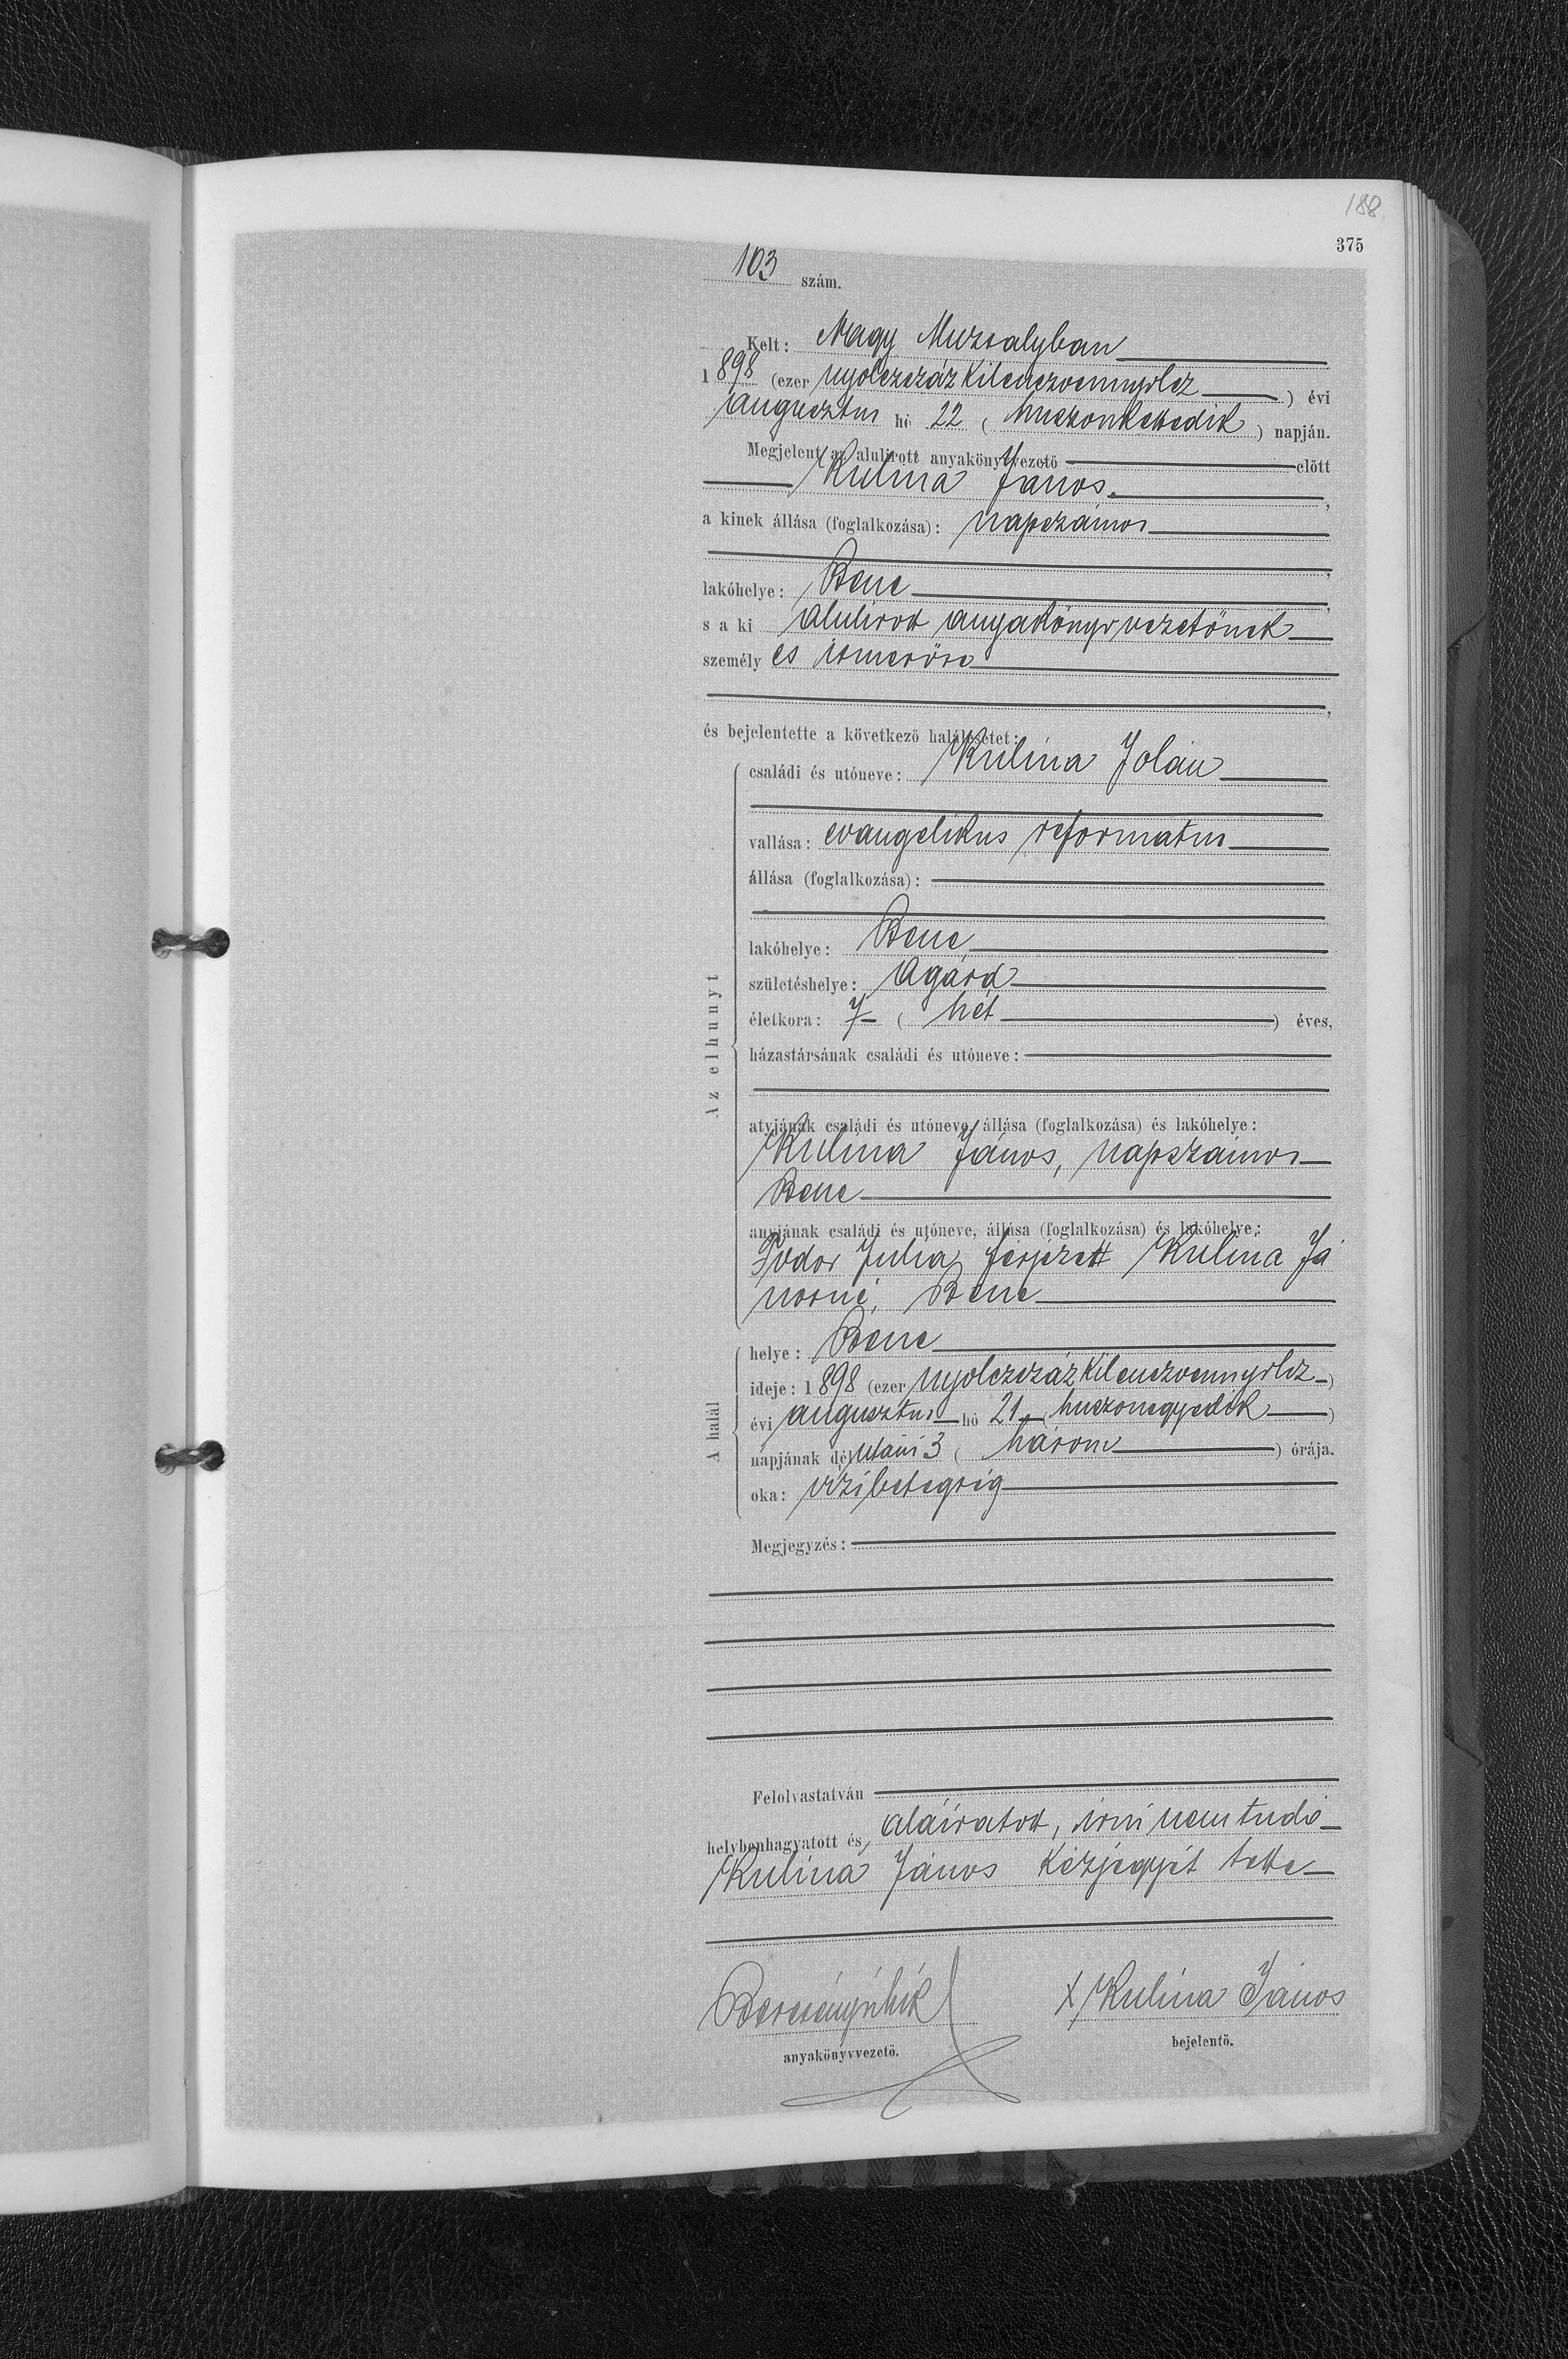 188
375
103 szám.
Kelt: Nagy Muzsalyban
1898 (ezer nyolczszázkilenczvennyolcz) évi
augusztus hó 22 (huszonkettedik) napján.
Megjelent az alulirott anyakönyvvezető előtt
Kulina János,
a kinek állása (foglalkozása): napszámos
,
lakóhelye: Bene,
s a ki alulirott anyakönyvvezetőnek
személyes ismerőse
,
és bejelentette a következő halálesetet:
Az elhunyt
családi és utóneve: Kulina Jolán
vallása: evangelikus reformatus
állása (foglalkozása):
lakóhelye: Bene
születéshelye: Agárd
életkora: 7 (hét) éves,
házastársának családi és utóneve:
atyjának családi és utóneve, állása (foglalkozása) és lakóhelye:
Kulina János, napszámos
Bene
anyjának családi és utóneve, állása (foglalkozása) és lakóhelye:
Fodor Julia, férjezett Kulina Já
nosné, Bene
A halál
helye: Bene
ideje: 1898 (ezer nyolczszázkilenczvennyolcz)
évi augusztus hó 21 (huszonegyedik)
napjának délutáni 3 (három) órája.
oka: vizibetegség
Megjegyzés:
Felolvastatván
helybenhagyatott és aláiratott, irni nem tudó
Kulina János kézjegyét tette
X Kulina János
anyakönyvvezető. bejelentő.